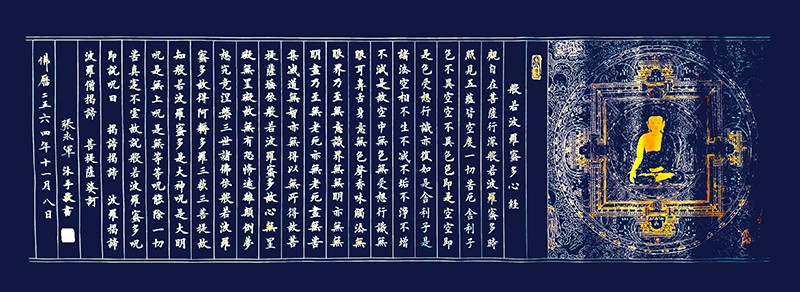 般若波羅蜜多心經
觀自在菩薩行深般若波羅蜜多時
照見五蘊皆空度一切苦厄舍利子
色不異空空不異色色即是空空即
是色受想行識亦復如是舍利子是
諸法空相不生不滅不垢不淨不增
不減是故空中無色無受想行識無
眼耳鼻舌身意無色聲香味觸法無
眼界乃至無意識界無無明亦無無
明盡乃至無老死亦無老死盡無苦
集滅道無智亦無得以無所得故菩
提薩埵依般若波羅蜜多故心無罣
礙無罣礙故無有恐怖遠離顛倒夢
想究竟涅槃三世諸佛依般若波羅
蜜多故得阿耨多羅三藐三菩提故
知般若波羅蜜多是大神呪是大明
呪是無上呪是無等等呪能除一切
苦真實不虛故說般若波羅蜜多呪
即說呪曰 揭諦揭諦 波羅揭諦
波羅僧揭諦 菩提薩婆訶
張永軍 沐手敬書
佛曆二五六四年十一月八日